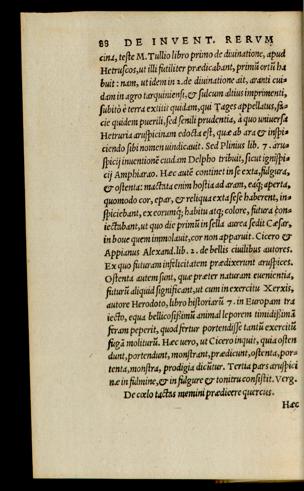 88 DE INVENT. RERVM
cina, teste M. Tullio libro primo de diuinatione, apud
Hetruscos, ut illi futiliter prædicabant, primũ ortũ ha
buit: nam, ut idem in 2. de diuinatione ait, aranti cui-
dam in agro tarquiniensi, & sulcum altius imprimenti,
subitò è terra extitit quidam, qui Tages appellatus, fa-
cie quidem puerili, sed senili prudentia, à quo uniuersa
Hetruria aruspicinam edocta est, quæ ab ara & inspi-
ciendo sibi nomen uindicauit. Sed Plinius lib. 7. aru-
spicij inuentionẽ cuidam Delpho tribuit, sicut ignispi-
cij Amphiarao. Hæc autẽ continet in se exta, fulgura,
& ostenta: mactata enim hostia ad aram, eaq; aperta,
quomodo cor, epar, & reliqua exta sese haberent, in-
spiciebant, ex eorumq; habitu atq; colore, futura con-
iectabant, ut quo die primũ in sella aurea sedit Cæsar,
in boue quem immolauit, cor non apparuit. Cicero &
Appianus Alexand. lib. 2. de bellis ciuilibus autores.
Ex quo futuram infelicitatem prædixerunt aruspices.
Ostenta autem sunt, quæ præter naturam euenientia,
futurũ aliquid significant, ut cum in exercitu Xerxis,
autore Herodoto, libro historiarũ 7. in Europam tra
iecto, equa bellicosißimũ animal leporem timidißimã
feram peperit, quod fertur portendisse tantũ exercitũ
fugã moliturũ. Hæc uero, ut Cicero inquit, quia osten
dunt, portendunt, monstrant, prædicunt, ostenta, por-
tenta, monstra, prodigia dicũtur. Tertia pars aruspici
næ in fulmine, & in fulgure & tonitru consistit. Verg.
De cœlo tactas memini prædicere quercus.
Hæc